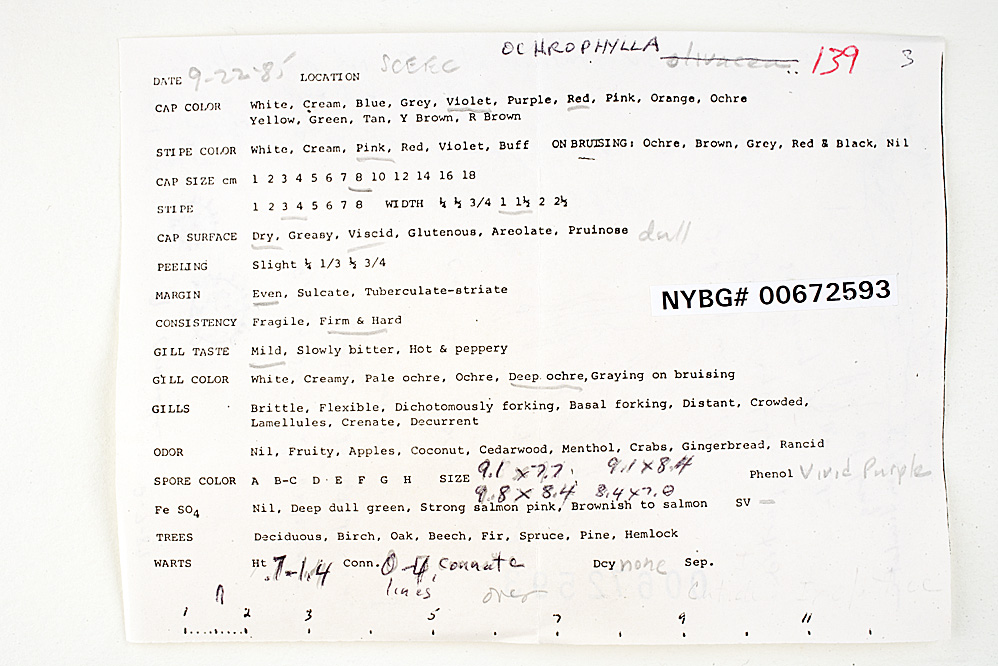 OCHROPHYLLA olivacea 139 3
DATE 9-22-85 LOCATION
CAP COLOR White, Cream, Blue, Grey, Violet, Purple, Red, Pink, Orange, Ochre
Yellow, Green, Tan, Y Brown, R Brown
STIPE COLOR White, Cream, Pink, Red, Violet, Buff ON BRUISING: Ochre, Brown, Grey, Red & Black, Nil
CAP SIZE cm 1 2 3 4 5 6 7 8 10 12 14 16 18
STIPE 1 2 3 4 5 6 7 8 WIDTH ¼ ½ 3/4 1 1½ 2 2½
CAP SURFACE Dry, Greasy, Viscid, Glutenous, Areolate, Pruinose dull
PEELING Slight ¼ 1/3 ½ 3/4
MARGIN Even, Sulcate, Tuberculate-striate
NYBG# 00672593
CONSISTENCY Fragile, Firm & Hard
GILL TASTE Mild, Slowly bitter, Hot & peppery
GILL COLOR White, Creamy, Pale ochre, Ochre, Deep ochre, Graying on bruising
GILLS Brittle, Flexible, Dichotomously forking, Basal forking, Distant, Crowded,
Lamellules, Crenate, Decurrent
ODOR Nil, Fruity, Apples, Coconut, Cedarwood, Menthol, Crabs, Gingerbread, Rancid
9.1 x 7.7 9.1 x 8.4
SPORE COLOR A B-C D E F G H SIZE Phenol Vivid Purple
9.8 x 8.4 8.4 x 7.0
Fe SO4 Nil, Deep dull green, Strong salmon pink, Brownish to salmon SV –
TREES Deciduous, Birch, Oak, Beech, Fir, Spruce, Pine, Hemlock
WARTS Ht .7-1.4 Conn. 0-4 connate Dcy none Sep.
lines over
1 2 3 5 7 9 11